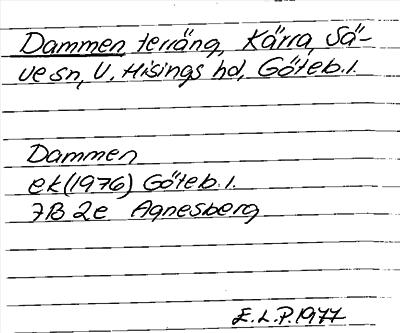 Dammen terräng, Kärra, Sä-
ve sn, V. Hisings hd, Göteb. l.
Dammen
ek (1976) Göteb. l.
7B 2e Agnesberg
E.L.P. 1977